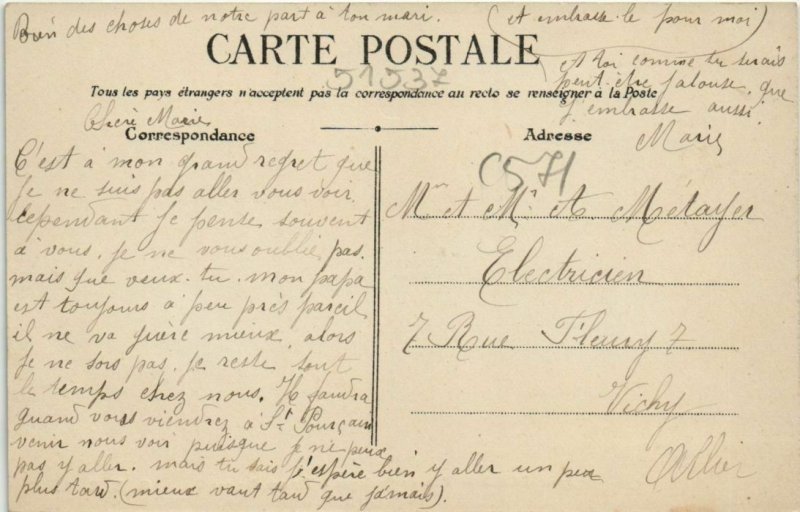 Bien des choses de notre part à ton mari. (et embrasse le pour moi)
CARTE POSTALE
et toi comme tu serais
51537
peut être jalouse que
Tous les pays étrangers n'acceptent pas la correspondance au recto se renseigner à la Poste
j'embrasse aussi.
Marie
Chère Marie
Correspondance
C'est à mon grand regret que
je ne suis pas aller vous voir
cependant je pense souvent
à vous. je ne vous oublie pas.
mais que veux-tu. mon papa
est toujours à peu près pareil
il ne va guère mieux, alors
je ne sors pas. je reste tout
le temps chez nous. Il faudra
quand vous viendrez à St Pourçain
venir nous voir puisque je ne peux
pas y aller. mais tu sais j'espère bien y aller un peu
plus tard. (mieux vaut tard que jamais).
Adresse
C571
Mr et Me A Métayer
Electricien
7 Rue Fleury 7
Vichy
Allier